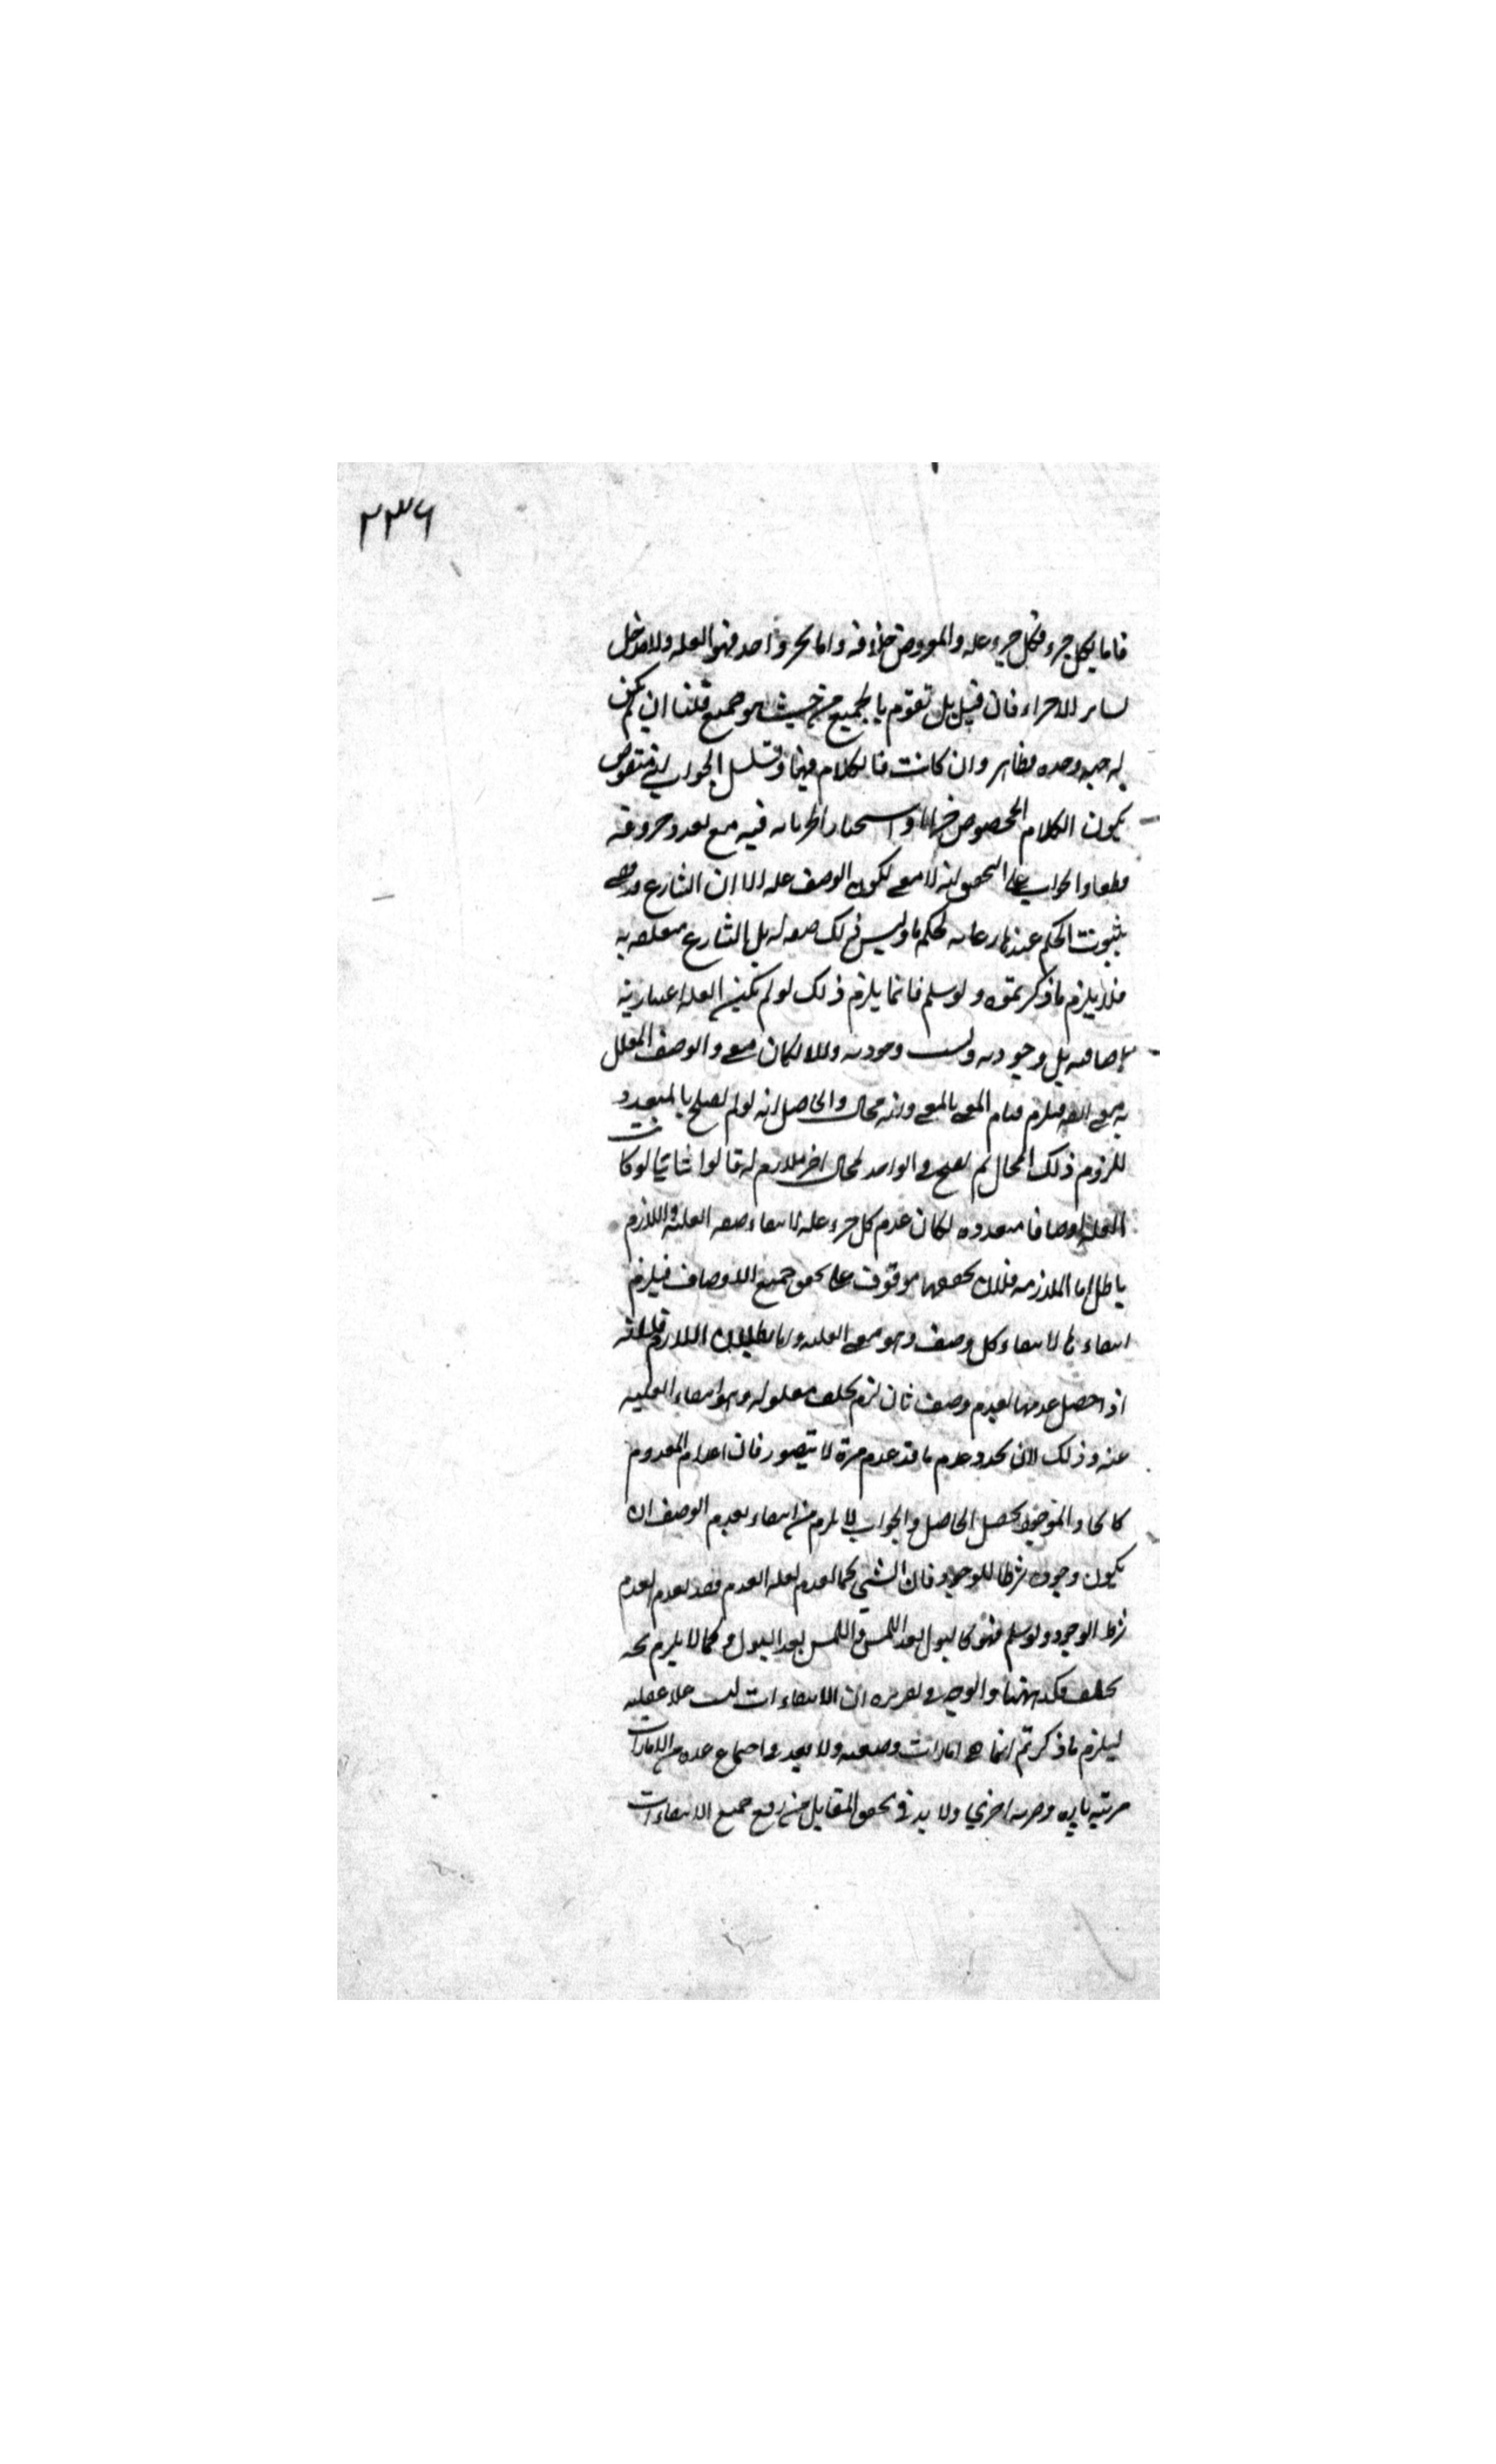 ٢٣٦
فاما بكل جزء فكل جزء علة والمفروض خلافه واما بجزء واحد فهو العلة ولا مدخل
لسائر الاجزاء فان قيل بل تقوم بالجميع من حيث هو جميع قلنا ان لم يكن
له جهة وحدة فظاهر وان كانت فالكلام فيها وتسلسل الجواب انه منقوض
بكون الكلام المخصوص خبرا او استخبارا لجريانه فيه مع تعدد حروفه
قطعا والجواب على التحقيق انه لا معنى لكون الوصف علة الا ان الشارع قضى
بثبوت الحكم عنده رعاية لحكمة ما وليس ذلك صفة له بل الشارع متعلقة به
فلا يلزم ما ذكرتموه ولو سلم فانما يلزم ذلك لو لم تكن العلة اعتبارية
اضافية بل وجودية وليست وجودية والا لكان معنى والوصف المعلل
به معنى ايضا فيلزم قيام المعنى بالمعنى وانه محال والحاصل انه لو لم يصلح بالمتعدد
للزوم ذلك المحال لم يصح في الواحد لمحال اخر ملازم له قالوا ثانيا لو كانت
العلة اوصافا متعددة لكان عدم كل جزء علة لانتفاء صفة العلية واللازم
باطل اما الملازمة فلان تحققها موقوف على تحقق جميع الاوصاف فيلزم
انتفاؤها لانتفاء كل وصف وهو معنى العلية واما بطلان اللازم فلانه
اذا حصل عدمها بعدم وصف ثان لزم تخلف معلوله وهو انتفاء العلية
عنه وذلك لان تجدد عدم ما قد عدم مرة لا يتصور فان اعدام المعدوم
كايجاد الموجود تحصيل الحاصل والجواب لا يلزم من انتفاء بعدم الوصف ان
يكون وجوده شرطا للوجود فان الشيء كما يعدم لعلة العدم فقد يعدم لعدم
شرط الوجود ولو سلم فهو كالبول بعد اللمس واللمس بعد البول وكما لا يلزم ثمه
تخلف فكذا ههنا والوجه في تقريره ان الانتفاءات ليست عللا عقلية
ليلزم ما ذكرتم انما هي امارات وضعية ولا بعد في اجتماع عدة من الامارات
مرتبة تارة وضربة اخرى ولا بد في تحقق المقابل من رفع جميع الانتفاءات